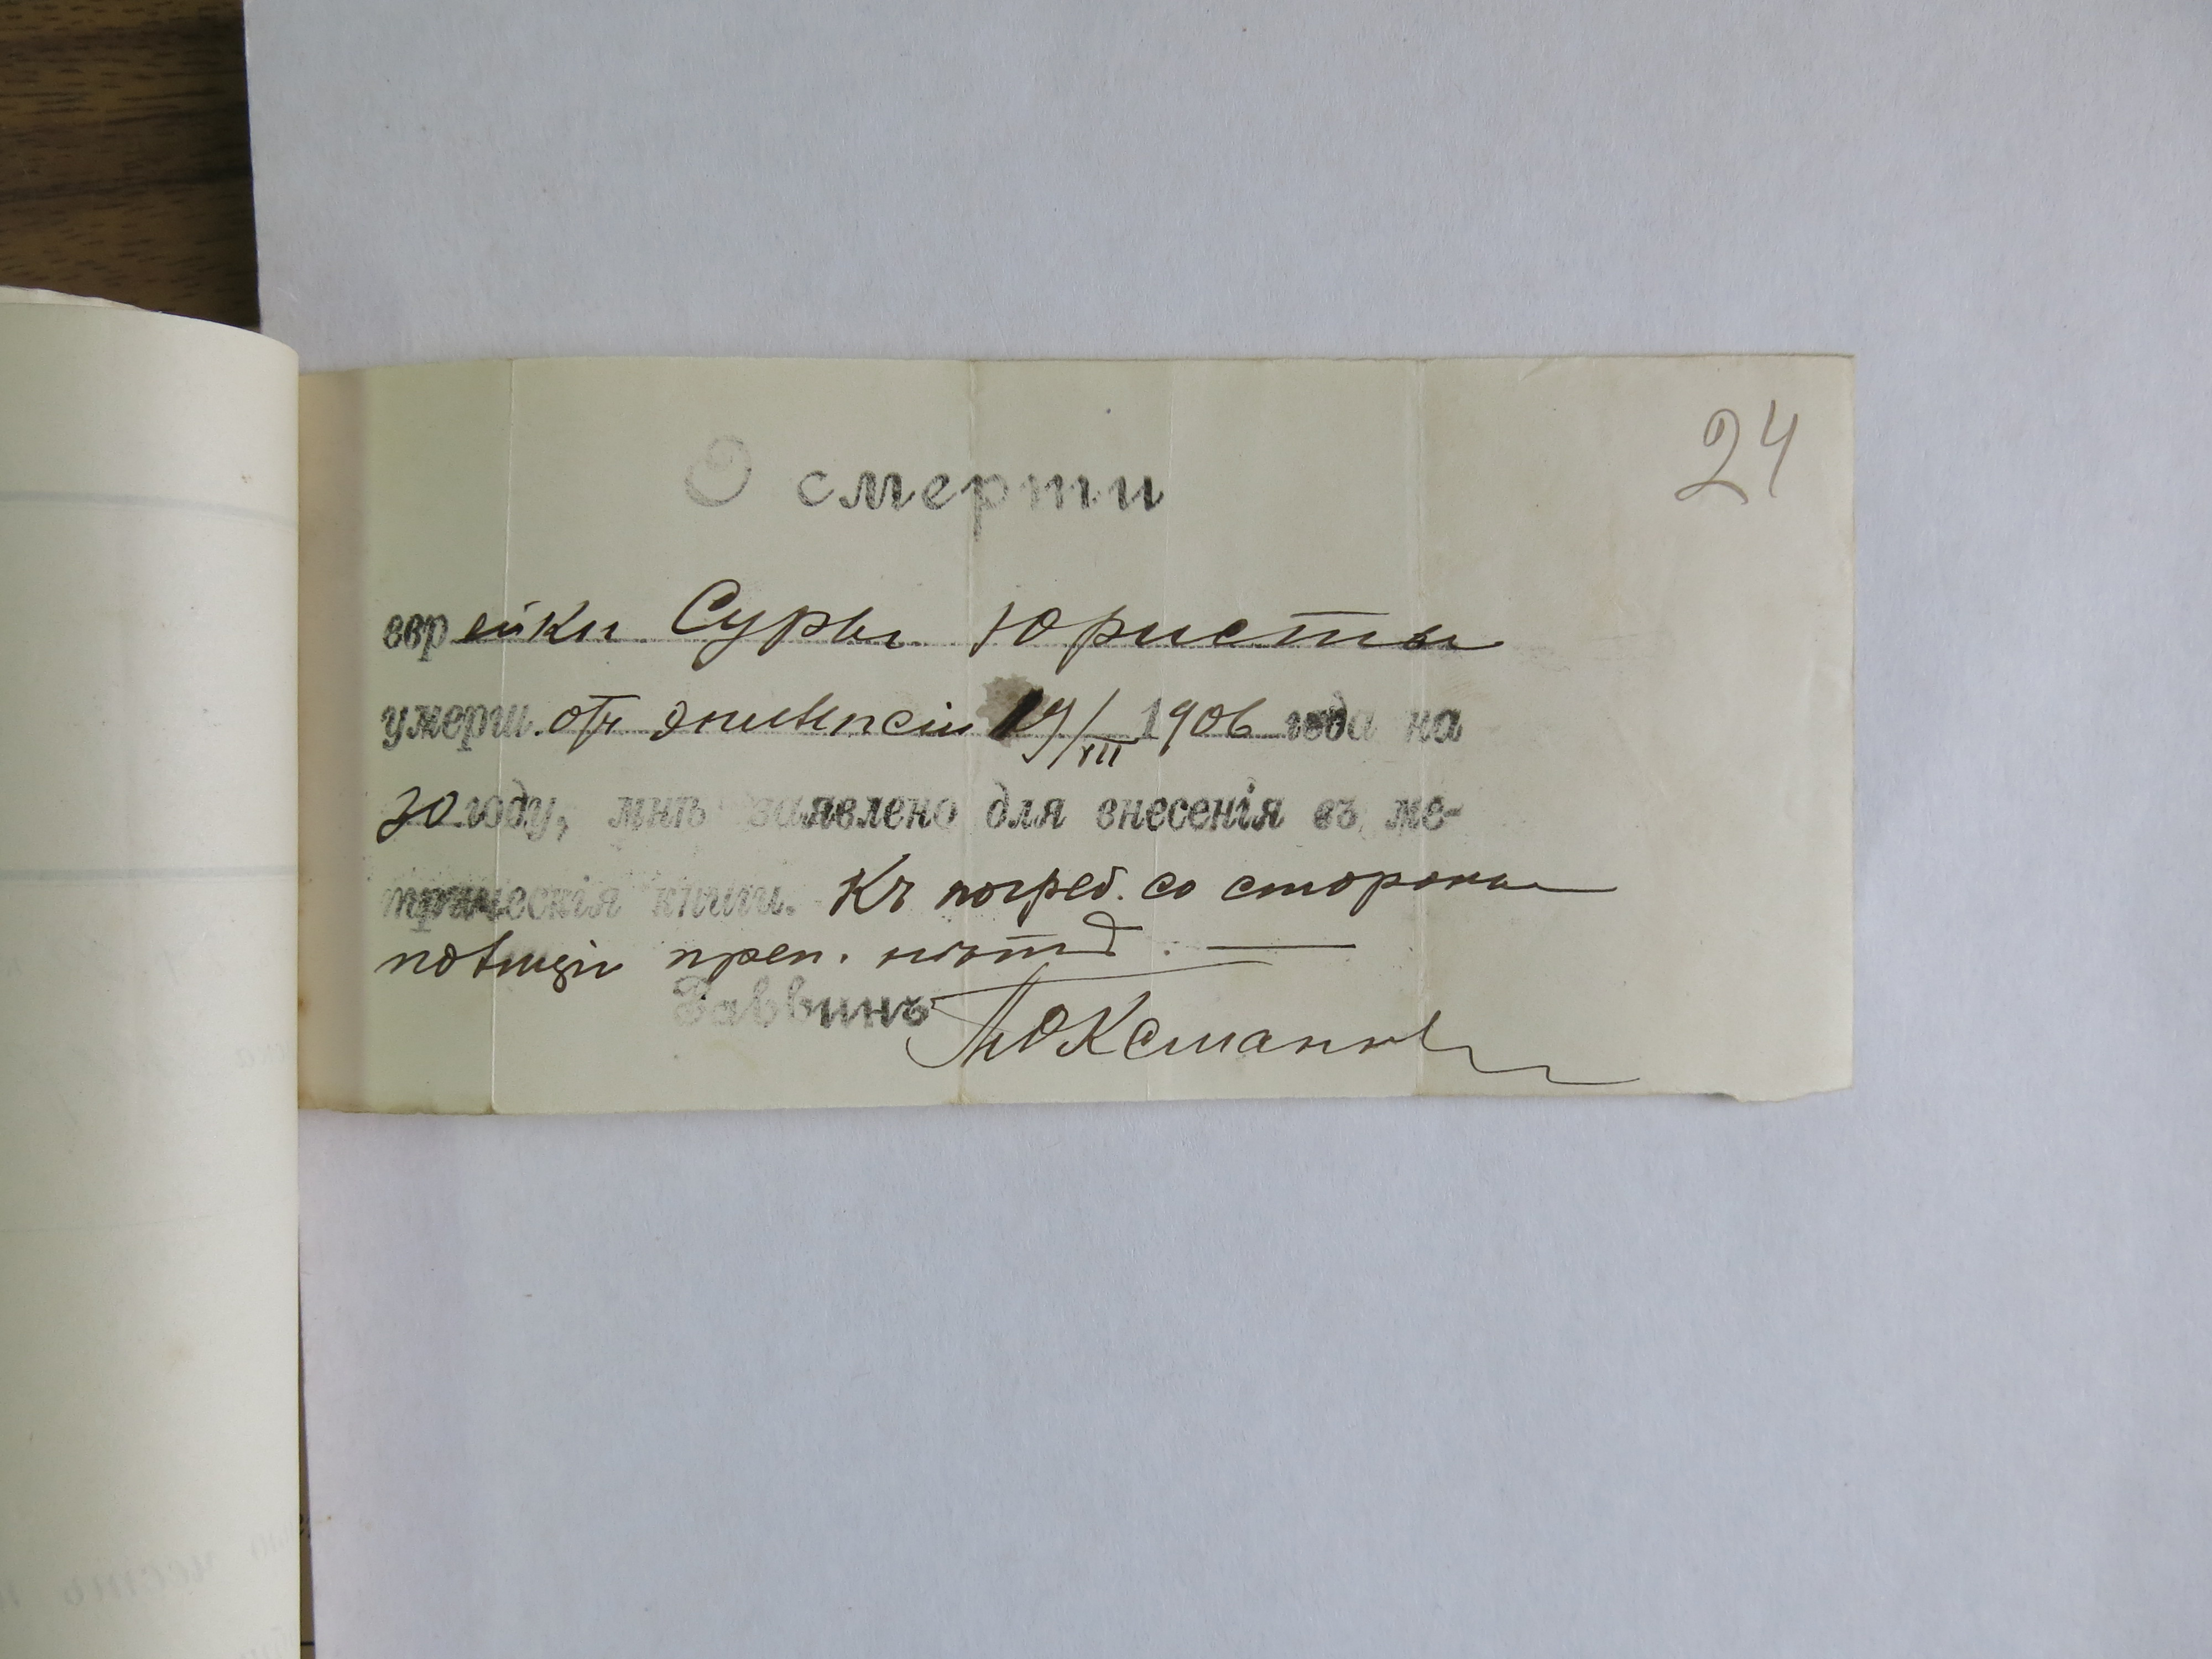 24
О смерти
еврейки Суры Юристы
умерш. отъ эпилепсіи 19/XII 1906 года на
20 году, мнѣ заявлено для внесенія въ ме-
трическія книги. Къ погреб. со стороны
полиціи преп. нѣтъ.
Раввинъ